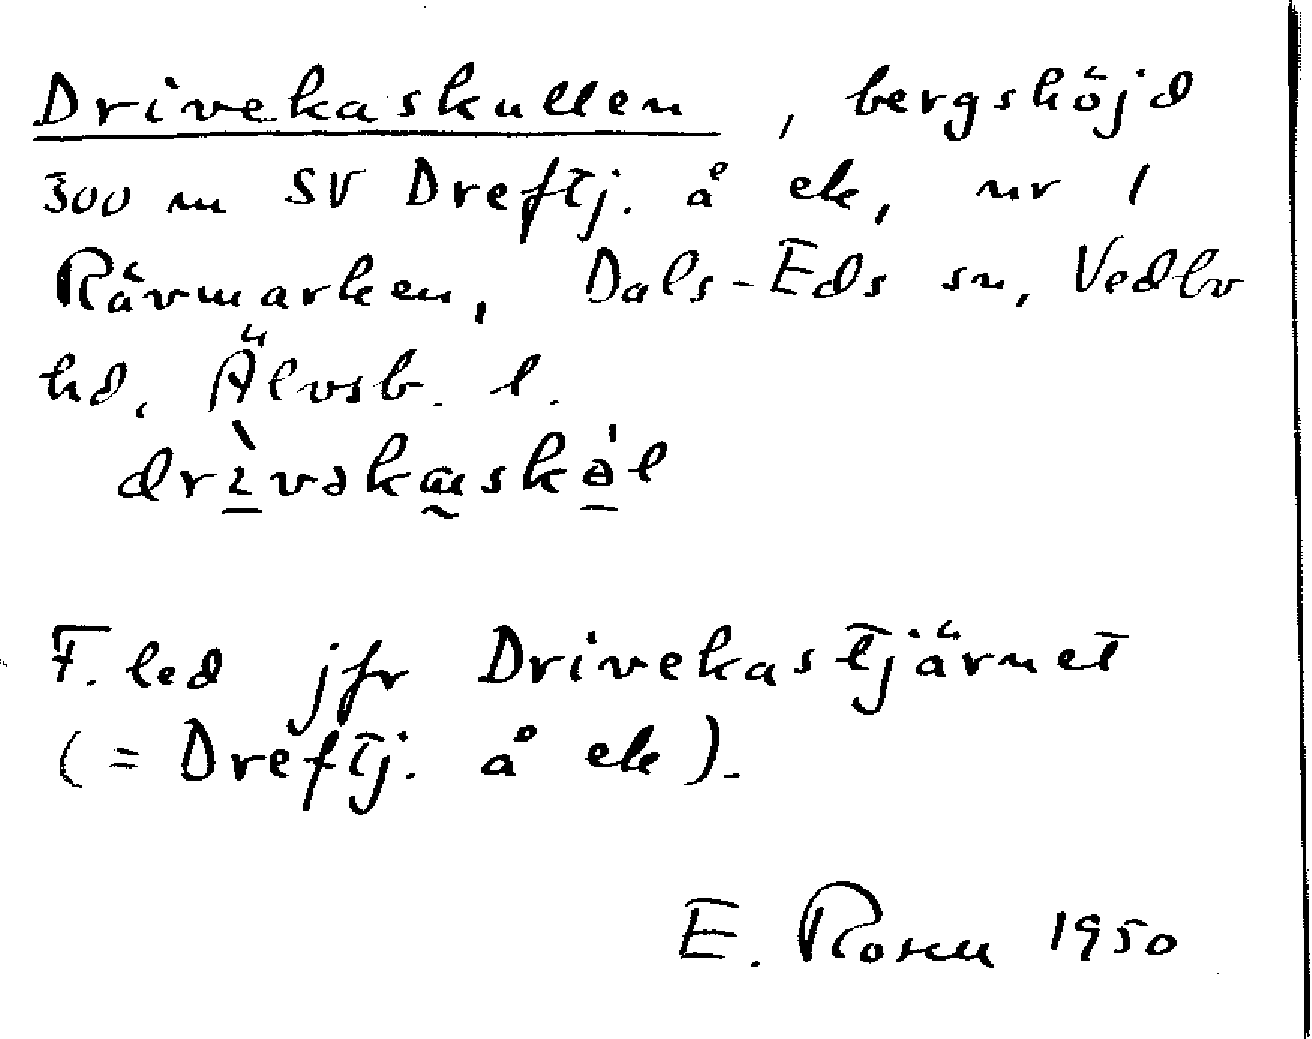 Drivekaskullen, bergshöjd
300 m SV Dreftj. å ek, nr 1
Rävmarken, Dals-Eds sn, Vedbo
hd, Älvsb. l.
F. led jfr Drivekastjärnet
(= Dreftj. å ek).
E. Rosen 1950